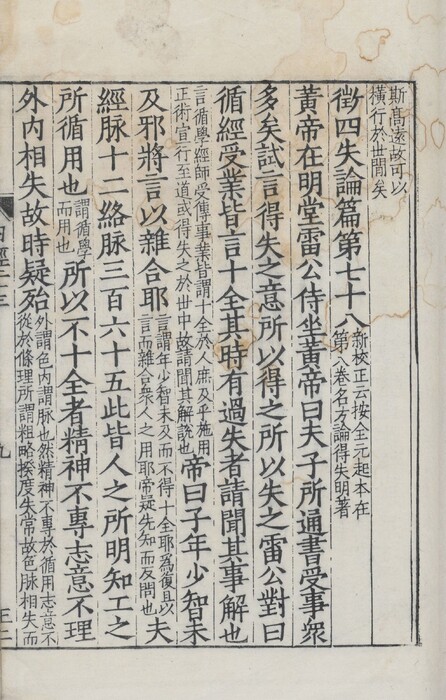 斯高遠故可以
橫行於世間矣
徵四失論篇第七十八
新校正云按全元起本在
第八卷名方論得失明著
黃帝在明堂雷公侍坐黃帝曰夫子所通書受事衆
多矣試言得失之意所以得之所以失之雷公對曰
循經受業皆言十全其時有過失者請聞其事解也
言循學經師受傳事業皆謂十全於人庶及乎施用
正術宣行至道或得失之於世中故請聞其解說也
帝曰子年少智未
及邪將言以雜合耶
言謂年少智未及而不得十全耶為復且以
言而雜合衆人之用耶帝疑先知而反問也
夫
經脉十二絡脉三百六十五此皆人之所明知工之
所循用也
謂循學
而用也
所以不十全者精神不專志意不理
外內相失故時疑殆
外謂色內謂脉也然精神不專於循用志意不
從於條理所謂粗略揆度失常故色脉相失而